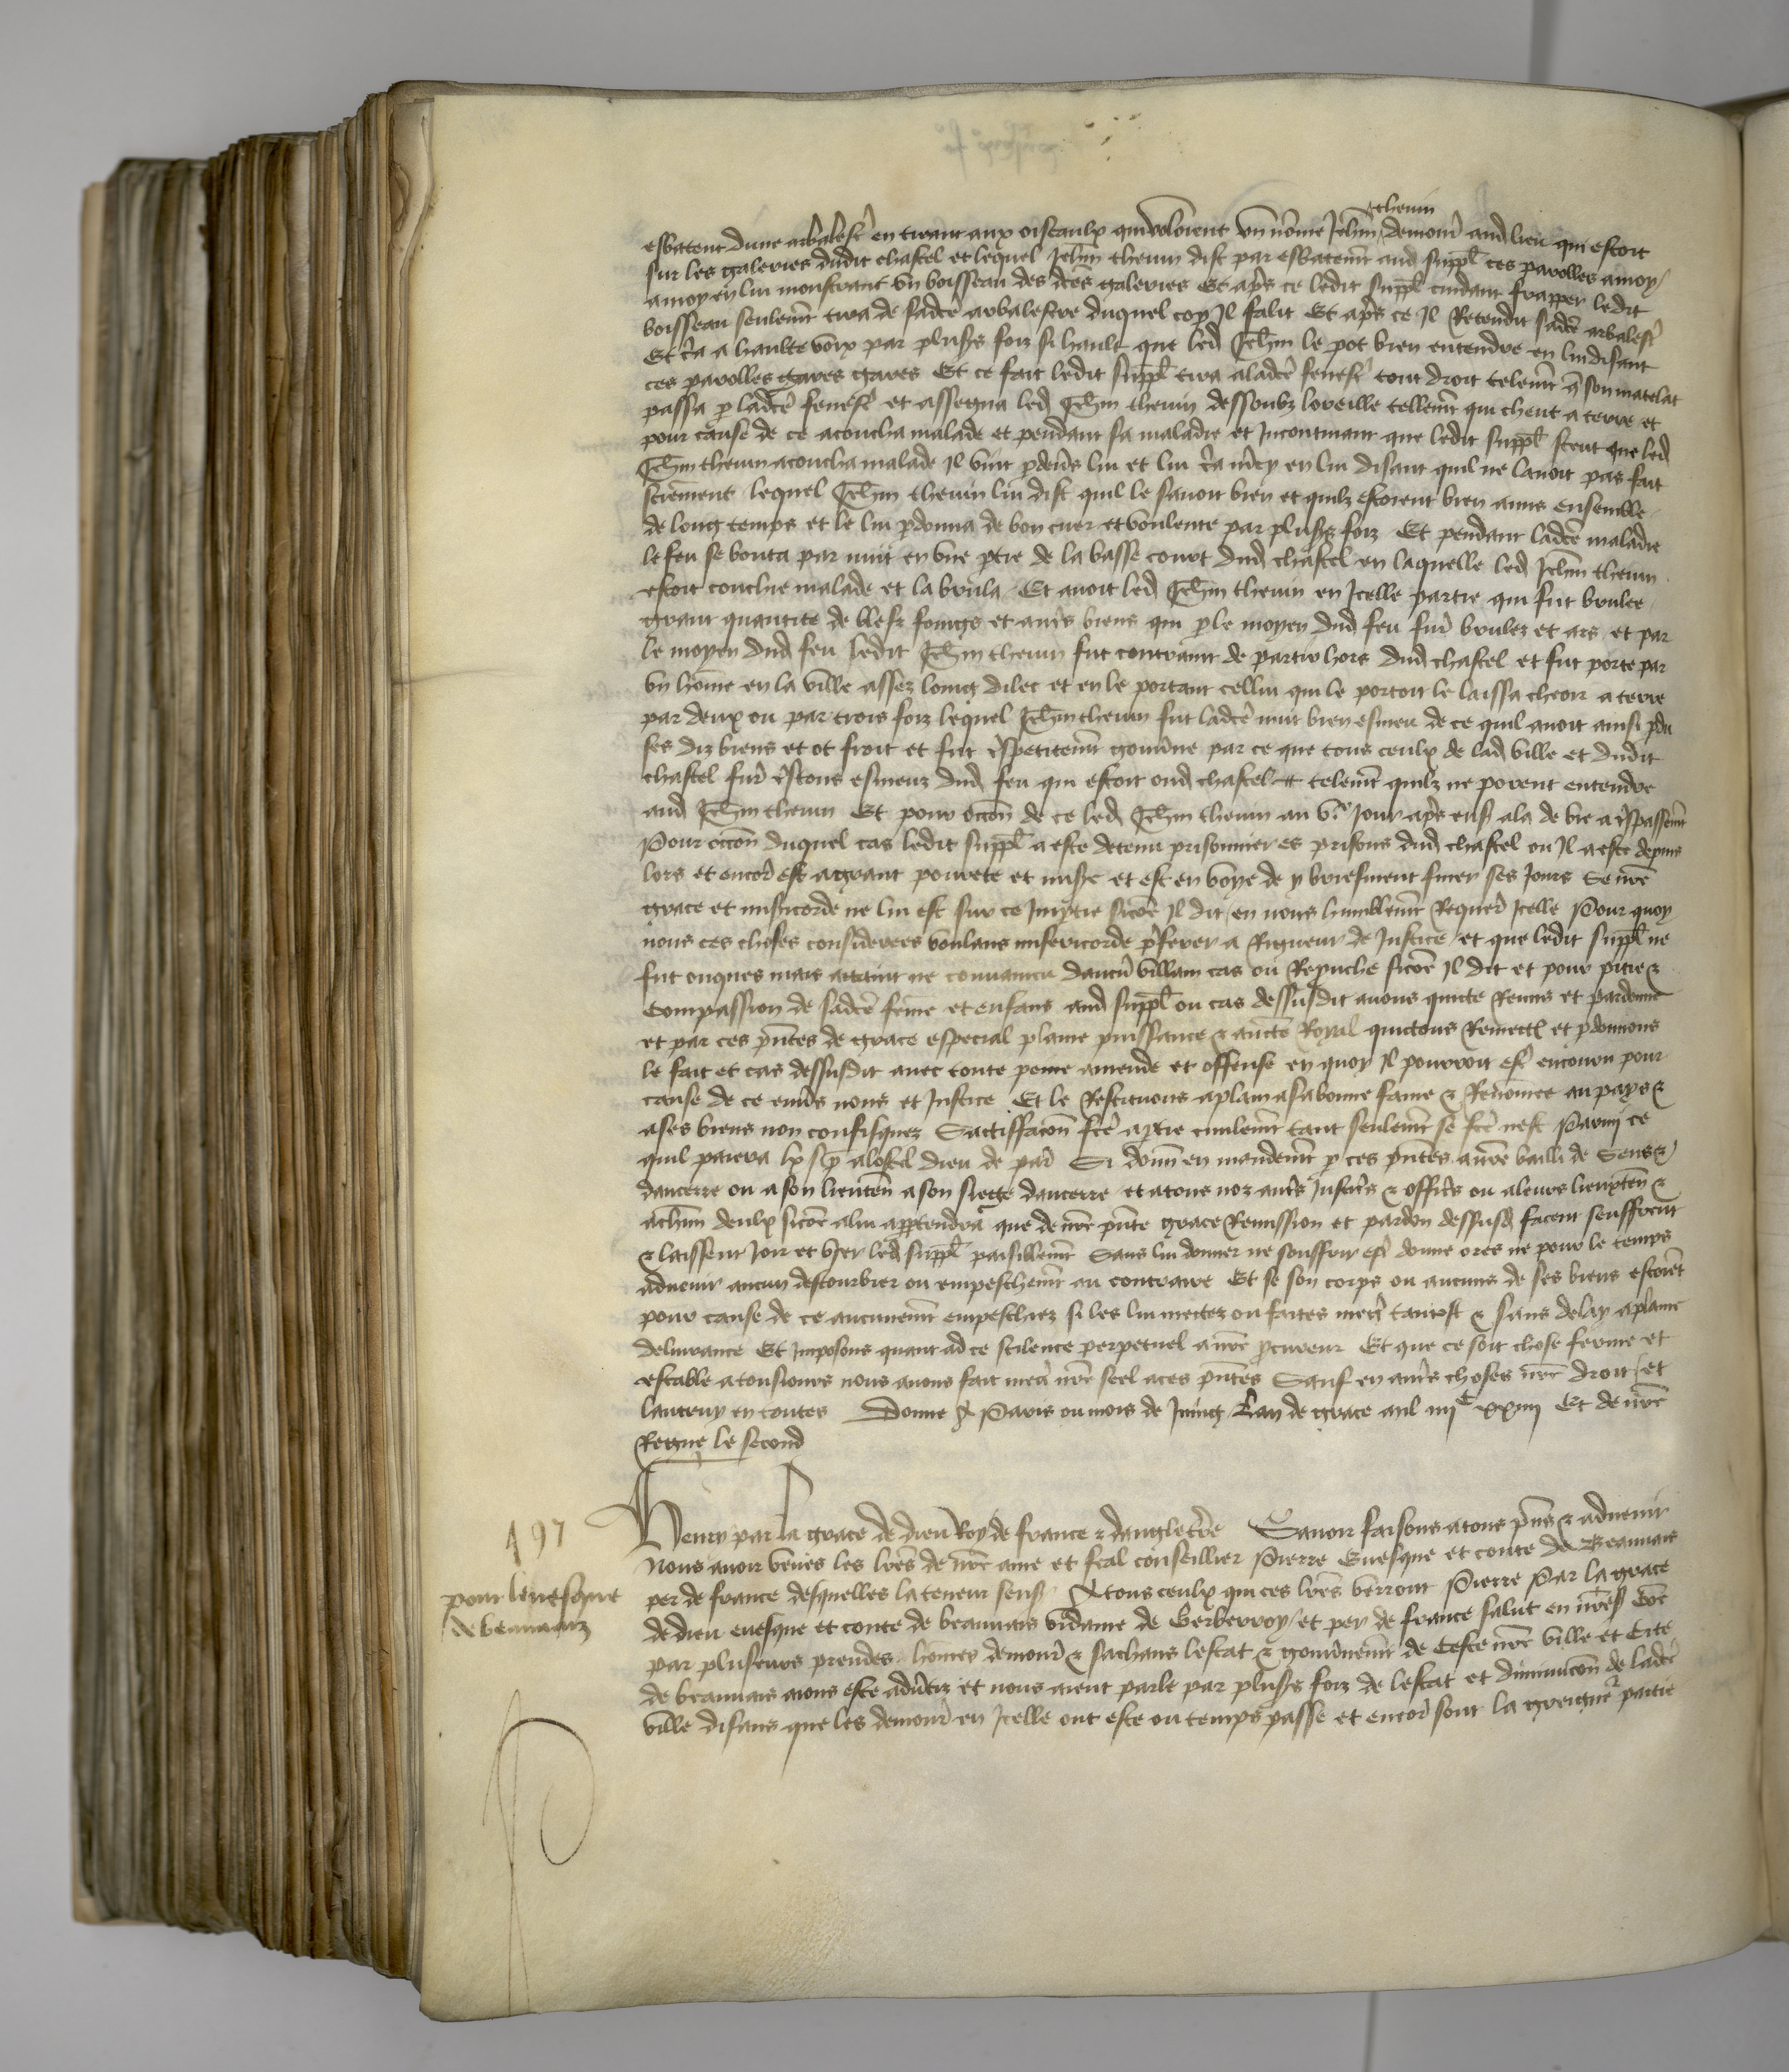 thenin
esbatent dune arbalestr en tirant aux oiseaulx qui voloient un nōme Jehn demour aud lieu qui estoit
sur les galeries dudit chastel et lequel Jehn thenin dist par esbatemt aud suppl ces parolles amoy
amoy en lui monstrant un boisseau des dces galeries Et aprs ce ledit suppl cuidant frapper ledit
boisseau seulemt tira de sadce arbalestre duquel cop Il falit Et aprs ce Il Retendit sadce arbalestr
Et cria a haulte voix par plusrs foiz si hault que led Jehn le pot bien entendre en lui disant
ces parolles gares gares Et ce fait ledit suppl tira aladce fenestr tout droit telemt q son matelat
passa p ladce fenestr et assegna led Jehn thenin dessoubz loreille tellemt qui cheut a terre et
pour cause de ce acoucha malade et pendant sa maladie et Incontinant que ledit suppl sceut que led
Jehn thenin acoucha malade Il vint pdevs lui et lui cria mcy en lui disant quil ne lavoit pas fait
sciemment lequel Jehn thenin lui dist quil le savoit bien et quilz estoient bien amis ensemble
de long temps et le lui pdonna de bon cuer et voulente par plusrs foiz Et pendant ladce maladie
le feu se bouta par nuit en une ptie de la basse court dud chastel en laquelle led Jehn thenin
estoit couchie malade et la brula Et avoit led Jehn thenin en Icelle partie qui fut brulee
grant quantite de blefz foings et autrs biens qui ple moyen dud feu fur brulez et ars et par
le moyen dud feu ledit Jehn thenin fut contraint de partir hors dud chastel et fut porte par
un hōme en la ville assez loing dilec et en le portant cellui qui le portoit le laissa cheoir a terre
par deux ou par trois foiz lequel Jehn thenin fut ladce nuit bien esmeu de ce quil avoit ainsi pdu
ses diz biens et ot froit et fut trspetitemt gouvne par ce que tous ceulx de lad ville et dudit
chastel fur trstous esmeuz dud feu qui estoit oud chastel telemt quilz ne porent entendre
aud Jehn thenin Et pour occon de ce led Jehn thenin au Ve Jour aprs ens ala de vie a trspassemt
Pour occon duquel cas ledit suppl a este detenu prisonnier es prisons dud chastel ou Il a este depuis
lors et encor est a grant povrete et misre et est en voye de y briefment finer ses Jours Se nre
grace et misricorde ne lui est sur ce Imptie sicōe Il dit en nous humblemt Requert Icelle Pour quoy
nous ces choses considerees voulans misericorde prferer a Rigueur de Justice et que ledit suppl ne
fut onques mais attaint ne convaincu daucun villain cas ou Repuche sicōe Il dit et pour pitie &
Compassion de sadce feme et enfans aud suppl ou cas dessusdit avons quicte Remis et pardonne
et par ces pntes de grace especial plaine puissance & aucte Royal quictons Remectō et pdonnons
le fait et cas dessusdit avec toute peine amende et offense en quoy Il pourroit estr encouru pour
cause de ce envs nous et Justice Et le Restituons aplain asabonne fame & Renomee au pays &
ases biens non confisquez Sattisfacon fce aptie civilemt tant seulemt se fce nest Parmi ce
quil paiera lx s p alostel dieu de par Si donn en mandemt p ces pntes anre bailli de Sens &
daucerre ou a son lieuten a son siege daucerre et atous noz autrs Justicrs & officrs ou aleurs lieuxten &
achun deulx sicōe alui appartendra que de nre pnte grace Remission et pardon dessusd facent seuffrent
& laissent Joir et user led suppl paisiblemt Sans lui donner ne souffrir estr donne ores ne pour le temps
advenir aucun destourbier ou empeschemt au contraire Et se son corps ou aucuns de ses biens estoiet
pour cause de ce aucunemt empeschiez si les lui mettez ou faites mectr tantost & sans delay aplaine
delivrance Et Imposons quant ad ce scilence perpetuel anre pcureur Et que ce soit chose ferme et
estable atousiours nous avons fait mectr nre seel aces pntes Sauf en autrs choses nre droit et
lautruy en toutes Donne A Paris ou mois de Juing Lan de grace mil iiiic xxiiii Et de nre
Regne le second
197
pour levesque
de beauvaiz
Henry par la grace de dieu Roy de france & dangleterre Savoir faisons atous pns & advenir
Nous avoir veues les lres de nre ame et feal conseillier Pierre Evesque et conte de Beauvais
per de france desquelles la teneur sens A tous ceulx qui ces lres verront Pierre Par la grace
de dieu evesque et conte de beauvais vidame de Gerberroy et per de france salut en nres Cōe
par pluseurs preudes homes demour & sachans lestat & gouvnemt de Ceste nre ville et Cite
de beauvais aions este advtiz et nous aient parle par plusrs foiz de lestat et diminucon de ladce
ville disans que les demour en Icelle ont este ou temps passe et encor sont la greigner partie